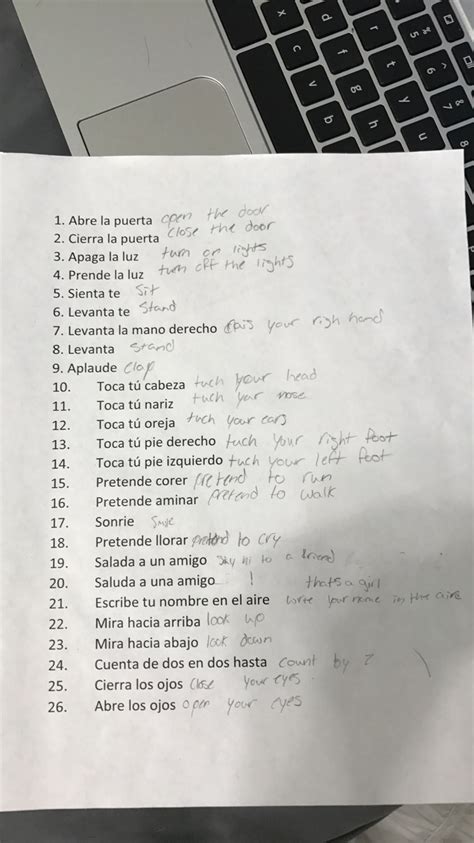 x d r 5 % ^ 6 & 7 8
c f t y u
v g h
b
1. Abre la puerta open the door
2. Cierra la puerta close the door
3. Apaga la luz turn on lights
4. Prende la luz turn off the lights
5. Sienta te Sit
6. Levanta te Stand
7. Levanta la mano derecho rais your righ hand
8. Levanta Stand
9. Aplaude Clap
10. Toca tú cabeza tuch your head
11. Toca tú nariz tuch your nose
12. Toca tú oreja tuch your ears
13. Toca tú pie derecho tuch your right foot
14. Toca tú pie izquierdo tuch your left foot
15. Pretende corer pretend to run
16. Pretende aminar pretend to walk
17. Sonrie
18. Pretende llorar pretend to cry
19. Salada a un amigo say hi to a friend
20. Saluda a una amigo ! thats a girl
21. Escribe tu nombre en el aire write your name in the aire
22. Mira hacia arriba look up
23. Mira hacia abajo look down
24. Cuenta de dos en dos hasta count by ?
25. Cierra los ojos Close your eyes.
26. Abre los ojos open your eyes